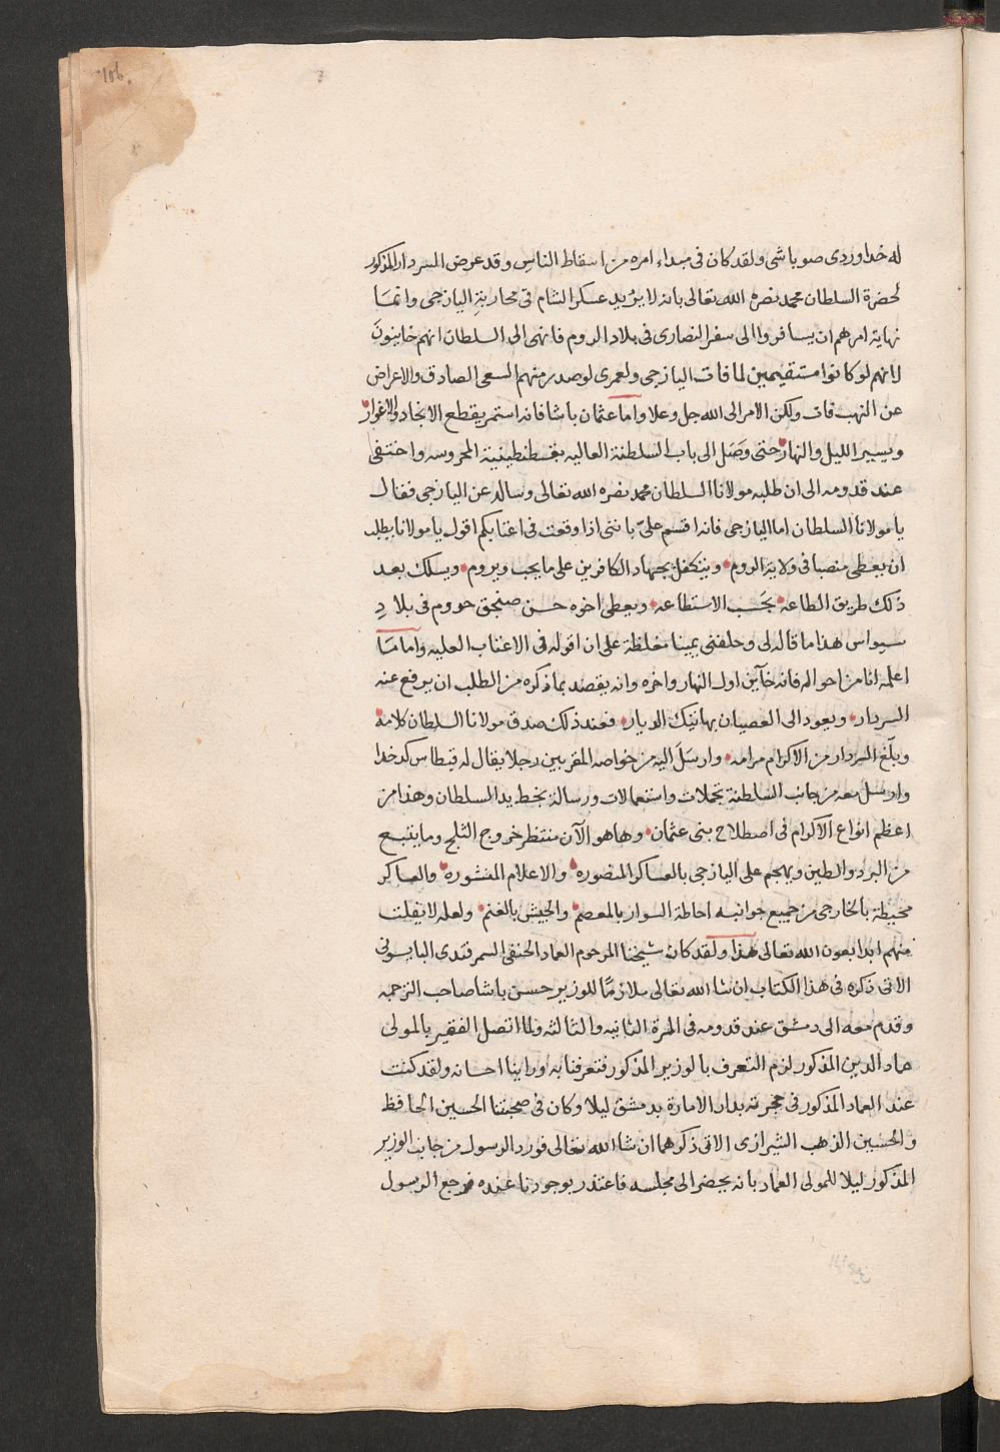 له خداوردى صوباشى ولقد كان فى مبداء امره من اسقاط الناس وقد عرض السردار المذكور
لحضرة السلطان محمد نصره الله تعالى بانه لا يريد عسكر الشام فى محاربة اليازجى وانما
نهاية امرهم ان يسافروا الى سفر النصارى فى بلاد الروم فانهى الى السلطان انهم خاينون
لانهم لو كانوا مستقيمين لما فات اليازجى ولعمرى لو صدر منهم السعى الصادق والاعراض
عن النهب فات ولكن الامر الى الله جل وعلا واما عثمان باشا فانه استمر يقطع الانجاد والاغوار
ويسير الليل والنهار حتى وصل الى باب السلطنة العاليه بقسطنطينية المحروسه واختفى
عند قدومه الى ان طلبه مولانا السلطان محمد نصره الله تعالى وساله عن اليازجى فقال
يا مولانا السلطان اما اليازجى فانه اقسم علىّ باننى اذا وقعت فى اعتابكم اقول يا مولانا يطلب
ان يعطى منصبا فى ولاية الروم ويتكفل بجهاد الكافرين على ما يجب ويروم ويسلك بعد
ذلك طريق الطاعه بحَسب الاستطاعه ويعطى اخوه حسن صنجق حووم فى بلادِ
سيواس هذا ما قاله لى وحلفنى يمينا مغلظة على ان اقوله فى الاعتاب العليه واما ما
اعلمه انا من احواله فانه خآين اول النهار واخره وانه يقصد بما ذكره من الطلب ان يرفع عنه
السردار ويعود الى العصيان بهاتيك الديار فعند ذلك صدق مولانا السلطان كلامه
وبلّغ السردار من الاكرام مرامه وارسَل اليه من خواصه المقربين رجلا يقال له قبطاس كدخدا
وارسل معه من جانب السلطنة تجملات واستعمالات ورسالة بخط يد السلطان وهذا من
اعظم انواع الاكرام فى اصطلاح بنى عثمان وها هو الآن منتظر خروج الثلج وما يتبع
من البرد والطين ويهجم على اليازجى بالعساكر المنصوره والاعلام المنشوره والعساكر
محيطة بالخارجى من جميع جوانبه احاطة السوار بالمعصم والجيش بالغنم ولعله لا يفلت
منهم ابدا بعون الله تعالى هذا ولقد كان شيخنا المرحوم العماد الحنفى السمرقندى
الاتى ذكره فى هذا الكتاب ان شا الله تعالى ملازمًا للوزير حسن باشا صاحب الترجمه
وقدم معه الى دمشق عند قدومه فى المرة الثانيه والثالثه ولما اتصل الفقير بالمولى
عماد الدين المذكور لزم التعرف بالوزير المذكور فتعرفنا به وراينا احسانه ولقد كنت
عند العماد المذكور فى حجرته بدار الامارة بدمشق ليلا وكان فى صحبتنا الحسين الحافظ
والحسين الشيرازى الاتى ذكرهما ان شا الله تعالى فورد الرسول من جانب الوزير
المذكور ليلا للمولى العماد بانه يحضر الى مجلسه فاعتذر بوجودنا عنده فرجع الرسول